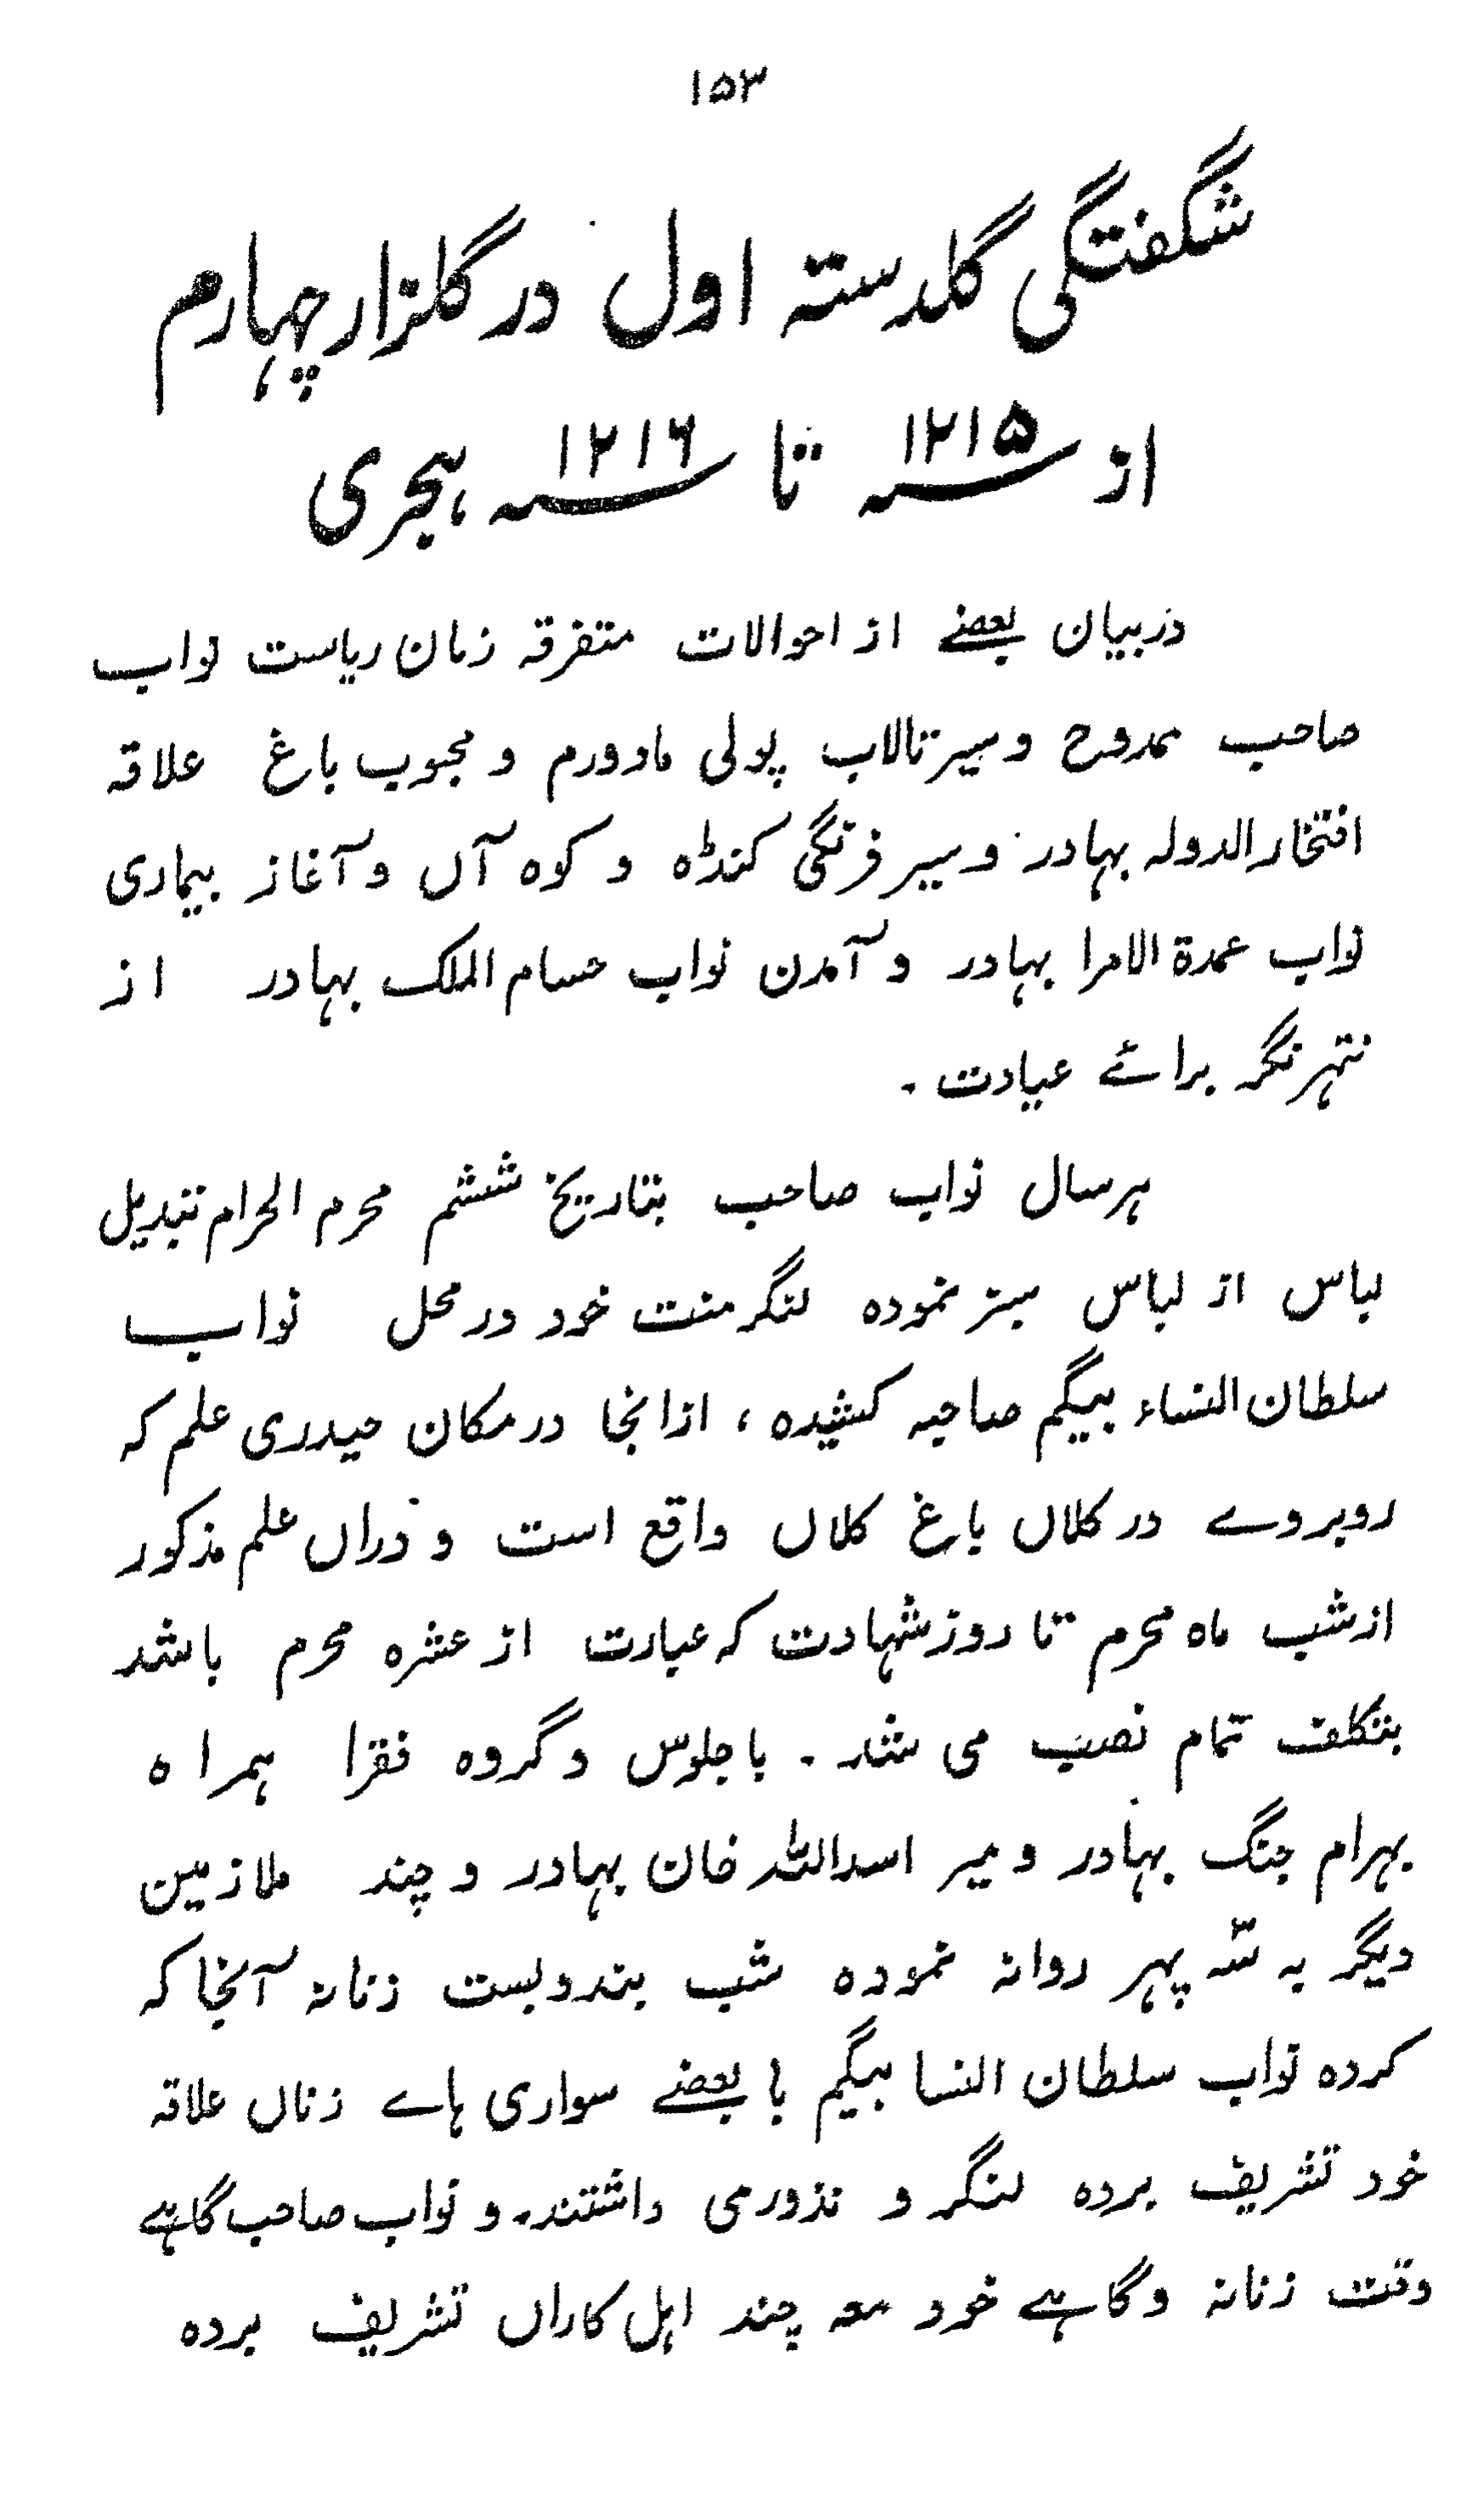 ۱۵۳
شگفتگی گلدستہ اول در گلزار چہارم
از سنہ ۱۲۱۵ تا سنہ ۱۲۱۶ ہجری
در بیان بعضے از احوالات متفرقہ زمان ریاست نواب
صاحب ممدوح و سیر تالاب پولی مادورم و محبوب باغ علاقہ
افتخار الدولہ بہادر و سیر فرنگی کنڈہ و کوہ آں و آغاز بیماری
نواب عمدۃ الامرا بہادر و آمدن نواب حسام الملک بہادر از
نتہر نگر برائے عیادت ۔
ہر سال نواب صاحب بتاریخ ششم محرم الحرام تبدیل
لباس از لباس سبز نمودہ لنگر منت خود در محل نواب
سلطان النساء بیگم صاحبہ کشیدہ ، ازانجا در مکان حیدری علم کہ
روبروے در کلاں باغ کلاں واقع است و دراں علم مذکور
از شب ماہ محرم تا روز شہادت کہ عبارت از عشرہ محرم باشد
بتکلف تمام نصب می شد ۔ با جلوس و گروہ فقرا ہمراہ
بہرام جنگ بہادر و میر اسد اللہ خان بہادر و چند ملازمین
دیگر بہ سہ پہر روانہ نمودہ شب بندوبست زنانہ آنجا کہ
کردہ نواب سلطان النسا بیگم با بعضے سواری ہاے زناں علاقہ
خود تشریف بردہ لنگر و نذور می داشتند۔ و نواب صاحب گاہے
وقت زنانہ و گاہے خود معہ چند اہل کاراں تشریف بردہ